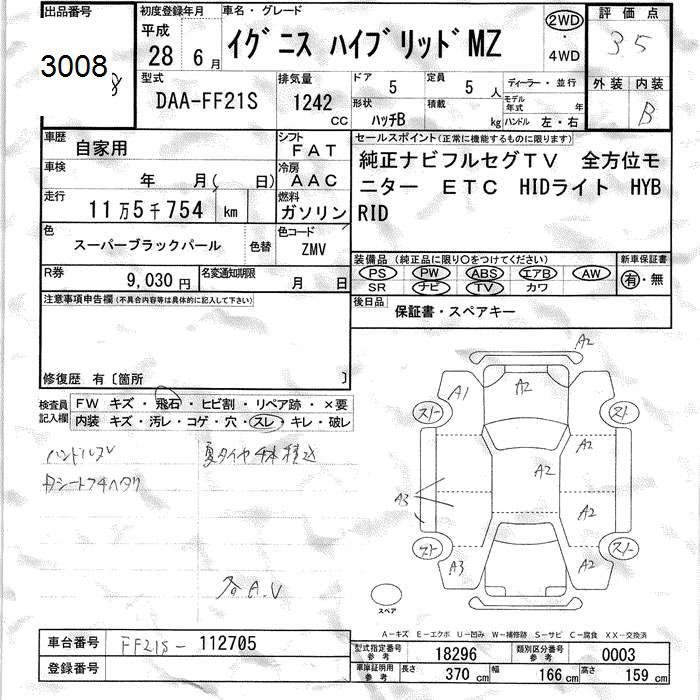 出品番号 初度登録年月 車名・グレード 評価点
3008 平成 28 6月 イグニス ハイブリッド MZ 2WD・4WD 3.5
型式 排気量 ドア 5 定員 5人 ディーラー・並行 外装 内装
DAA-FF21S 1242 CC 形状 ハッチB 積載 kg モデル年式 年 ハンドル 左・右 B
車歴 自家用 シフト FAT セールスポイント(正常に機能するものに限ります)
車検 年 月( 日) 冷房 AAC 純正ナビフルセグTV 全方位モ
走行 11万5千754 km 燃料 ガソリン ニター ETC HIDライト HYB
RID
色 スーパーブラックパール 色替 色コード ZMV
装備品(純正品に限り○をつけてください) 新車保証書
PS PW ABS エアB AW 有・無
SR ナビ TV カワ
R券 9,030円 名変通知期限 月 日
後日品 保証書・スペアキー
注意事項申告欄(不具合内容等は具体的に記入して下さい)
修復歴 有〔箇所 〕
検査員記入欄 FW キズ・飛石・ヒビ割・リペア跡・×要
内装 キズ・汚レ・コゲ・穴・スレ・キレ・破レ
ハンドルスレ 夏タイヤ4本積込
Dシートフチヘタリ
A2
A1 A2
スト スト
A2 A2
A3
A2
スト スト
A3 A2
スペア
A-キズ E-エクボ U-凹み W-補修跡 S-サビ C-腐食 XX-交換済
車台番号 FF21S-112705
登録番号
型式指定番号 参考 18296 類別区分番号 参考 0003
車庫証明用 参考 長さ 370 cm 幅 166 cm 高さ 159 cm